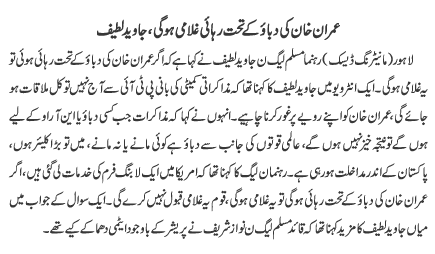 عمران خان کی دباؤ کے تحت رہائی غلامی ہوگی، جاوید لطیف
لاہور (مانیٹرنگ ڈیسک) رہنما مسلم لیگ ن جاوید لطیف نے کہا ہے کہ اگر عمران خان کی دباؤ کے تحت رہائی ہوئی تو
یہ غلامی ہوگی۔ ایک انٹرویو میں جاوید لطیف کا کہنا تھا کہ مذاکراتی کمیٹی کی بانی پی ٹی آئی سے آج نہیں تو کل ملاقات ہو
جائے گی، عمران خان کو اپنے رویے پر غور کرنا چاہیے۔ انہوں نے کہا کہ مذاکرات جب کسی دباؤ یا این آر او کے لیے
ہوں گے تو نتیجہ خیز نہیں ہوں گے، عالمی قوتوں کی جانب سے دباؤ ہے کوئی مانے یا نہ مانے، میں تو بڑا کلیئر ہوں،
پاکستان کے اندر مداخلت ہو رہی ہے۔ رہنما ن لیگ کا کہنا تھا کہ امریکا میں ایک لابنگ فرم کی خدمات لی گئی ہیں، اگر
عمران خان کی دباؤ کے تحت رہائی ہوگی تو یہ غلامی ہوگی، قوم یہ غلامی قبول نہیں کرے گی۔ ایک سوال کے جواب میں
میاں جاوید لطیف کا مزید کہنا تھا کہ قائد مسلم لیگ ن نواز شریف نے پریشر کے باوجود ایٹمی دھماکے کیے تھے۔